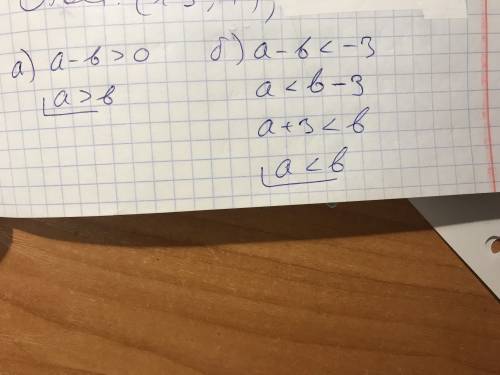 а) a - b > 0
a > b
б) a - b < -3
a < b - 3
a + 3 < b
a < b